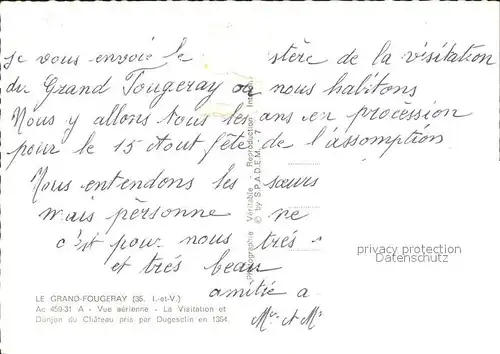 je vous envoie le stère de la visitation
du Grand Fougeray où nous habitons
Nous y allons tous les ans en procession
pour le 15 Aout fête de l'assomption
Nous entendons les sœurs
mais pèrsonne ne
c'est pour nous trés
et trés beau
amitié a
Mr et M
Photographie Véritable - Reproduction Inter
© by S.P.A.D.E.M. - 7
privacy protection
Datenschutz
LE GRAND-FOUGERAY (35. I.-et-V.)
Ac 459-31 A - Vue aérienne - La Visitation et
Donjon du Château pris par Dugesclin en 1354